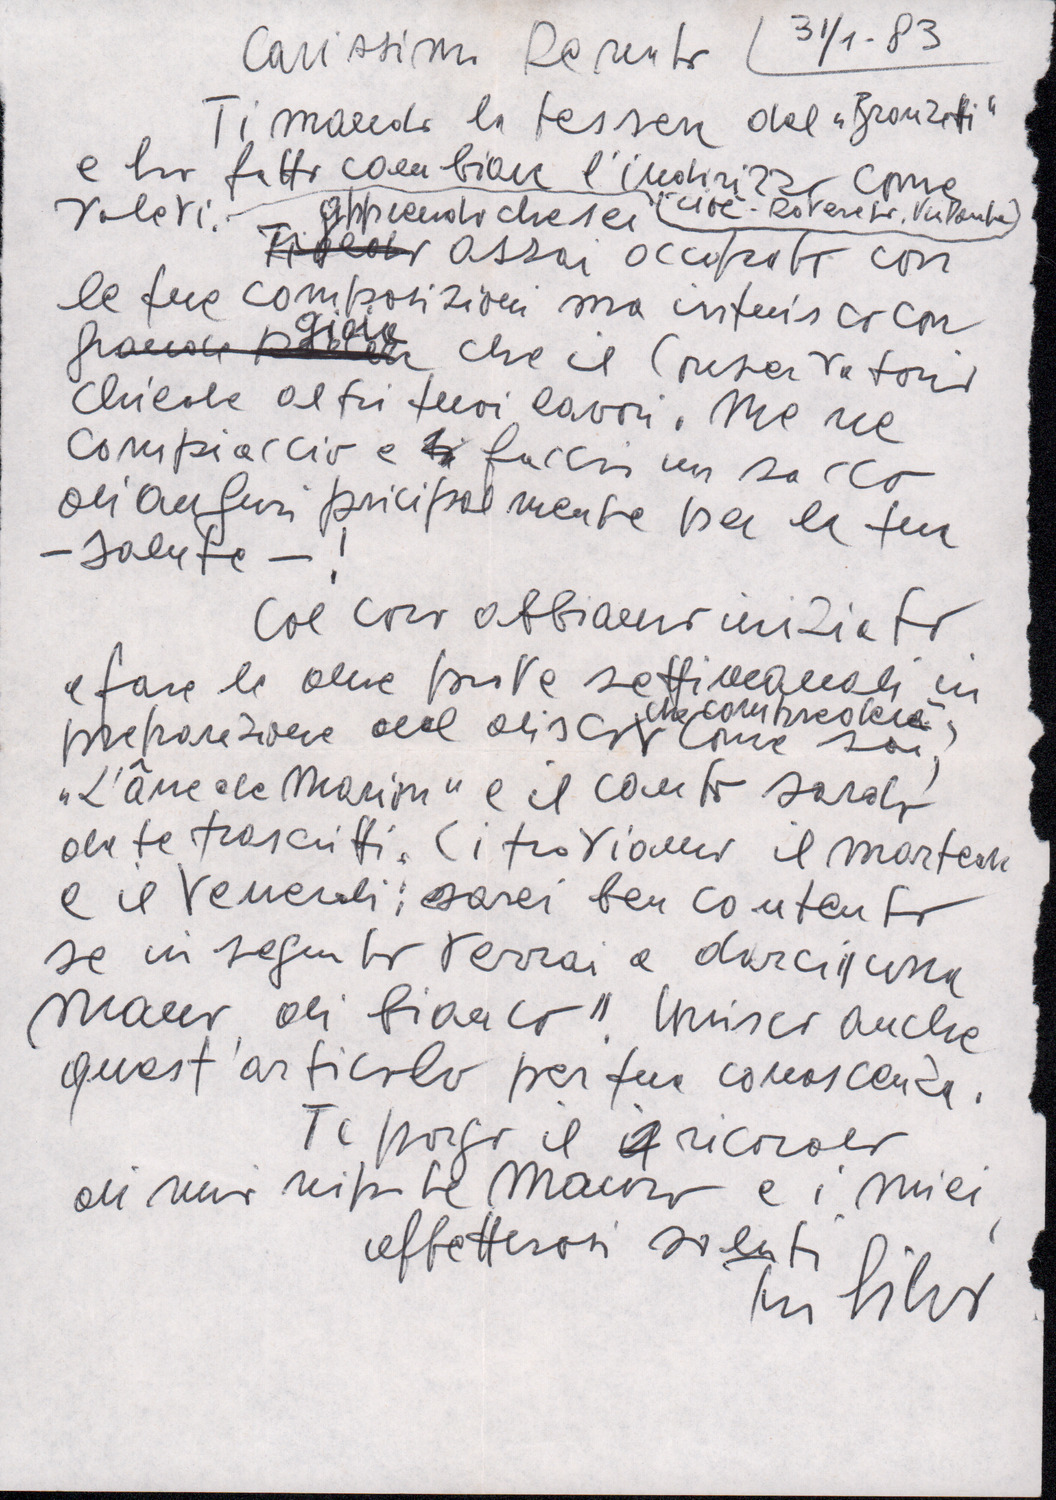 Carissimo Renato 31/1-83
Ti mando la tessera del „Bronzetti“
e ho fatto cambiare l'indirizzo come
volevi. (cioè - Rovereto, Via Dante)
apprendo che sei
assai occupato con
le tue composizioni ma intuisco con
gioia
che il Conservatorio
chiede altri tuoi lavori. Me ne
compiaccio e faccio un sacco
di auguri pricipalmente per la tua
- salute - !
Col coro abbiamo iniziato
a fare le due prove settimanali in
che comprenderà
preparazione del disco come sai,
„L'âne de Marion" e il canto sardo
da te trascritti. Ci troviamo il martedì
e il Venerdì; sarei ben contento
se in seguito verrai a darci "una
mano di bianco". Unisco anche
quest'articolo per tua conoscenza.
Ti porgo il ricordo
di mio nipote Mauro e i miei
affettuosi saluti
tuo Silvio